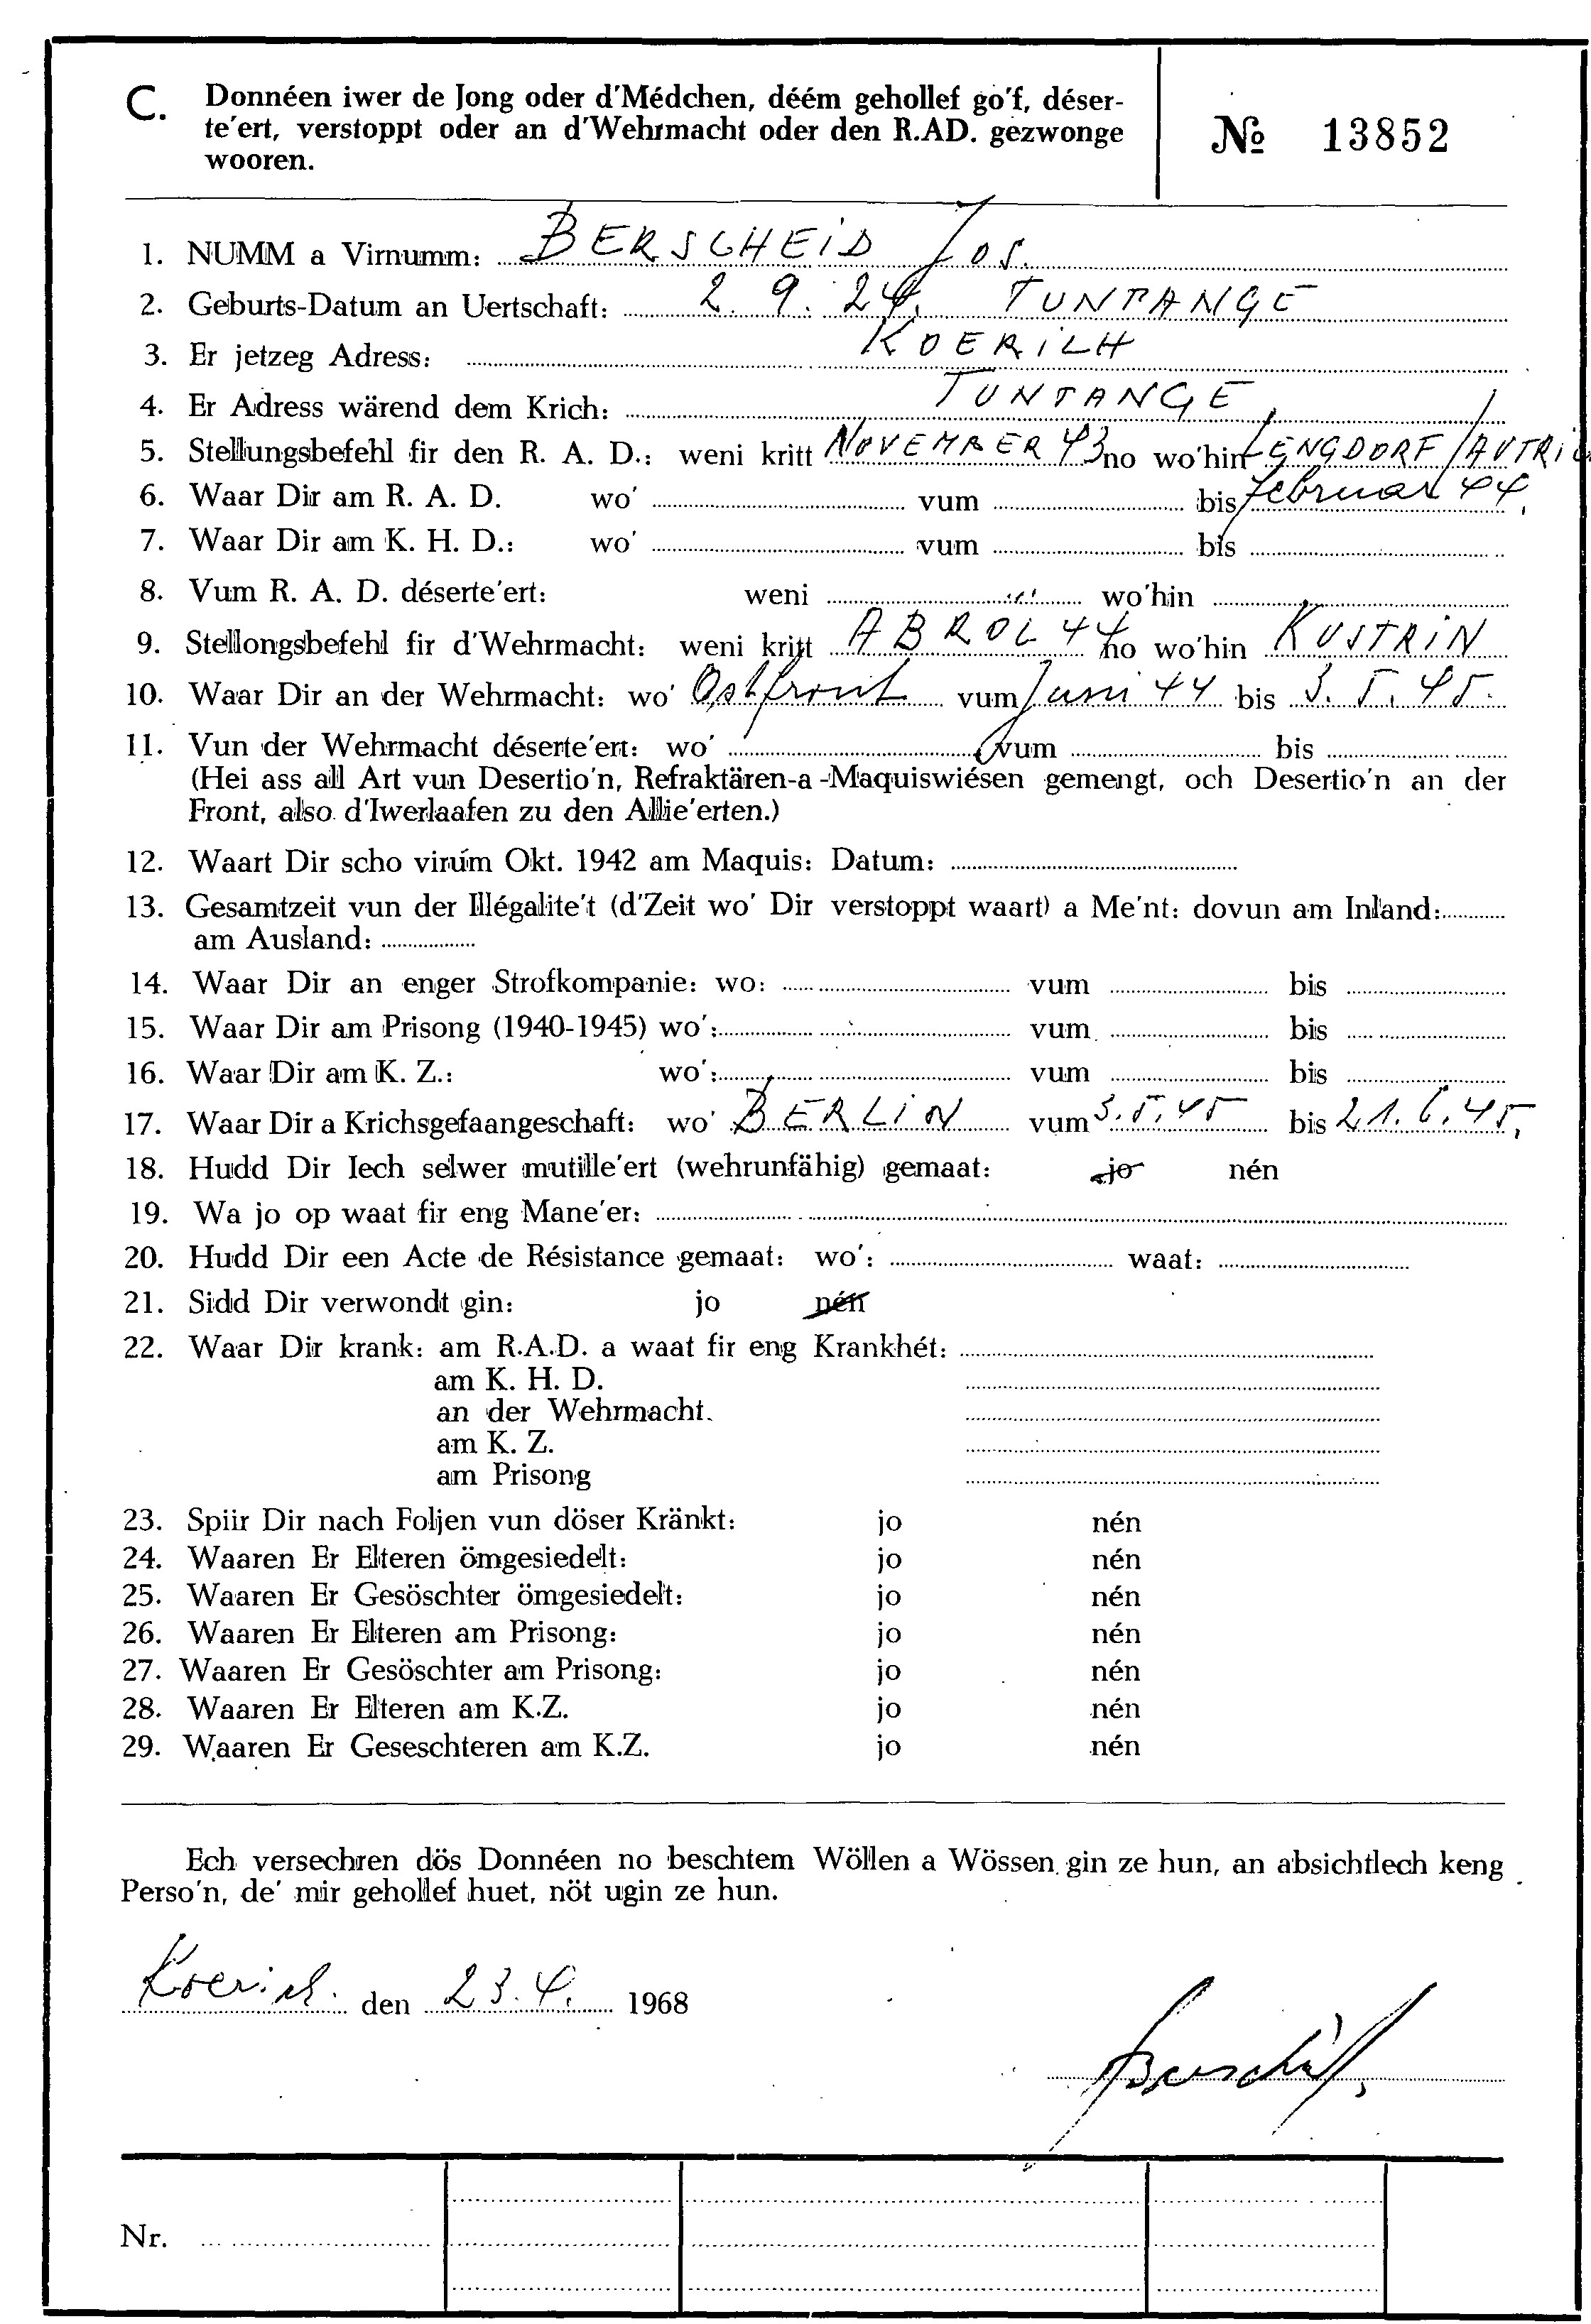 C. Donnéen iwer de Jong oder d'Médchen, déém gehollef go'f, déser-
te'ert, verstoppt oder an d'Wehrmacht oder den R.AD. gezwonge
wooren.
№ 13852
1. NUMM a Virnumm: BERSCHEID Jos.
2. Geburts-Datum an Uertschaft: 2. 9. 24. TUNTANGE
3. Er jetzeg Adress: KOERICH
4. Er Adress wärend dem Krich: TUNTANGE
5. Stellungsbefehl fir den R. A. D.: weni kritt NOVEMBER 43 no wo'hin LENGDORF/AUTRI
6. Waar Dir am R. A. D. wo' vum bis februar 44.
7. Waar Dir am K. H. D.: wo' vum bis
8. Vum R. A. D. déserte'ert: weni wo'hin
9. Stellongsbefehl fir d'Wehrmacht: weni kritt ABROL 44 no wo'hin KUSTRIN
10. Waar Dir an der Wehrmacht: wo' Ostfront vum Juni 44 bis 3. 5. 45.
11. Vun der Wehrmacht déserte'ert: wo' vum bis
(Hei ass all Art vun Desertio'n, Refraktären-a-Maquiswiésen gemengt, och Desertio'n an der
Front, also d'Iwerlaafen zu den Allie'erten.)
12. Waart Dir scho virum Okt. 1942 am Maquis: Datum:
13. Gesamtzeit vun der Illégalite't (d'Zeit wo' Dir verstoppt waart) a Me'nt: dovun am Inland:
am Ausland:
14. Waar Dir an enger Strofkompanie: wo: vum bis
15. Waar Dir am Prisong (1940-1945) wo': vum bis
16. Waar Dir am K. Z.: wo': vum bis
17. Waar Dir a Krichsgefaangeschaft: wo' BERLIN vum 3. 5. 45 bis 21. 6. 45.
18. Hudd Dir Iech selwer mutille'ert (wehrunfähig) gemaat: jo nén
19. Wa jo op waat fir eng Mane'er:
20. Hudd Dir een Acte de Résistance gemaat: wo': waat:
21. Sidd Dir verwondt gin: jo nén
22. Waar Dir krank: am R.A.D. a waat fir eng Krankhét:
am K. H. D.
an der Wehrmacht.
am K. Z.
am Prisong
23. Spiir Dir nach Foljen vun döser Kränkt: jo nén
24. Waaren Er Elteren ömgesiedelt: jo nén
25. Waaren Er Gesöschter ömgesiedelt: jo nén
26. Waaren Er Elteren am Prisong: jo nén
27. Waaren Er Gesöschter am Prisong: jo nén
28. Waaren Er Elteren am K.Z. jo nén
29. Waaren Er Geseschteren am K.Z. jo nén
Ech versechren dös Donnéen no beschtem Wöllen a Wössen gin ze hun, an absichtlech keng
Perso'n, de' mir gehollef huet, nöt ugin ze hun.
Koerich. den 23. 4. 1968
Nr.